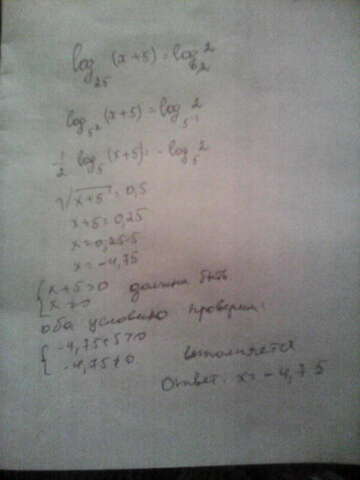 log₂₅ (x+5) = log₀,₂ 2
log₅² (x+5) = log₅⁻¹ 2
½ log₅ (x+5) = - log₅ 2
√x+5 = 0,5
x+5 = 0,25
x = 0,25-5
x = -4,75
{ x+5>0 должны быть
x ≠ 0
оба условия проверим:
{ -4,75+5>0
-4,75≠0 выполняется
Ответ: x = -4,75